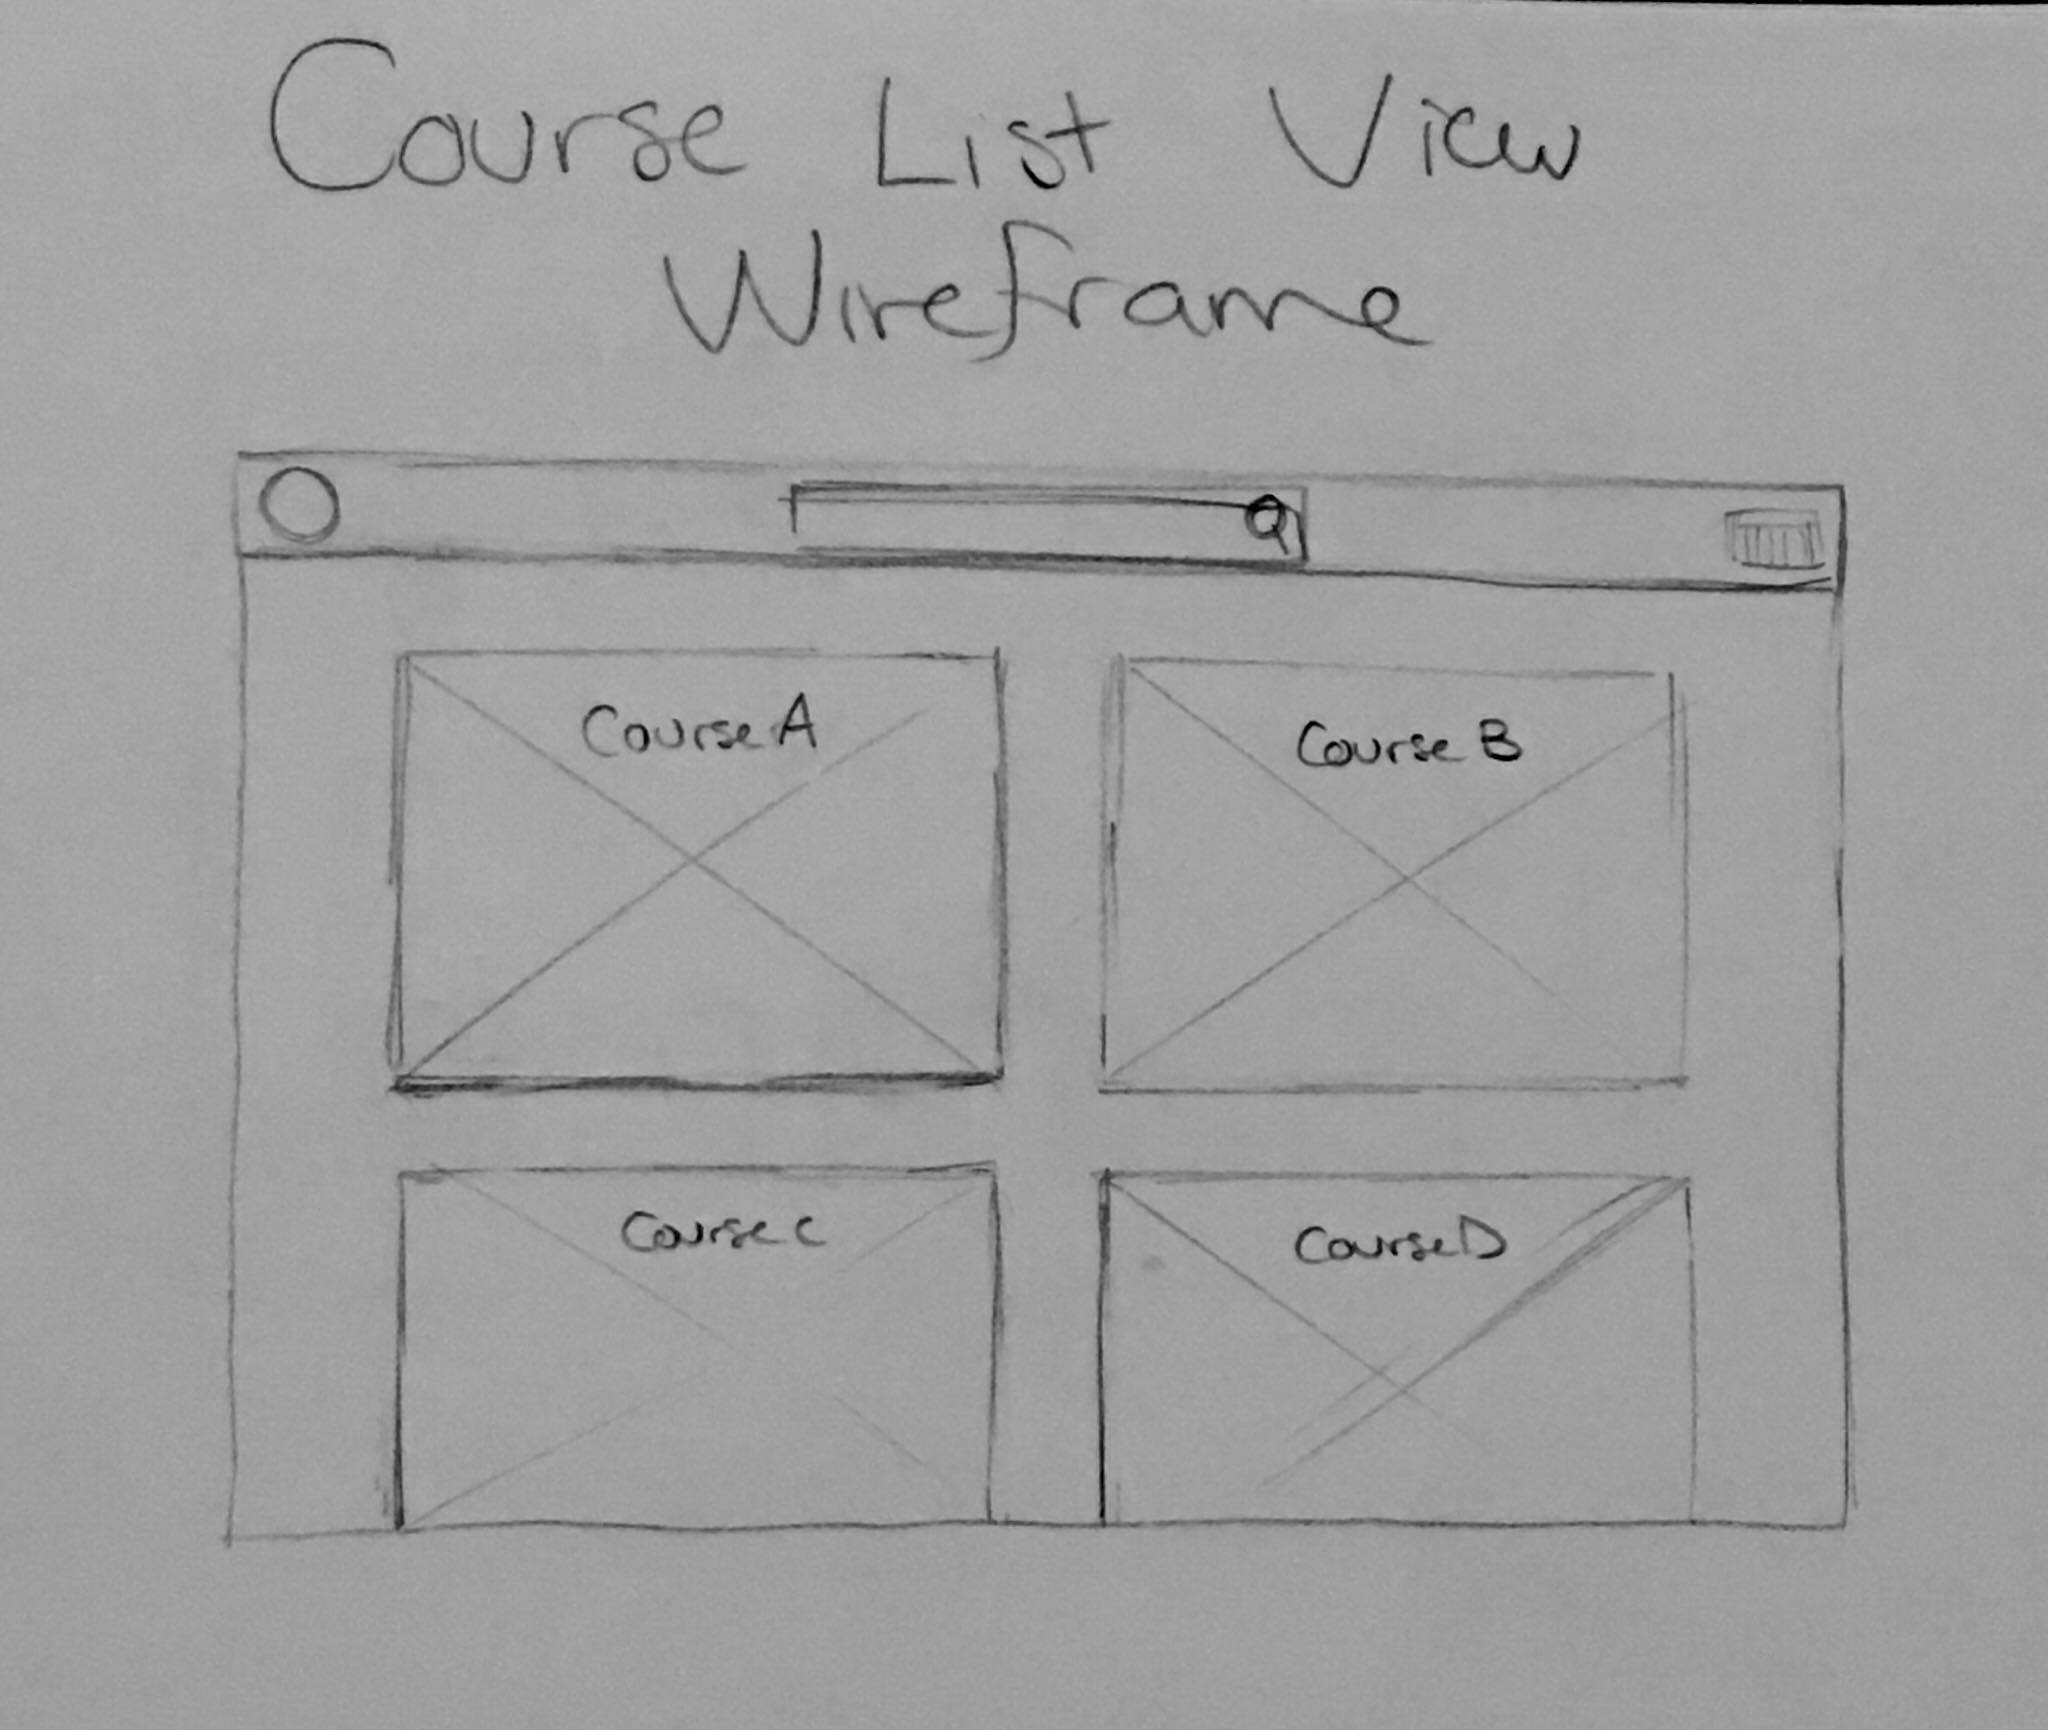 Course List View
Wireframe
Course A
Course B
Course C
Course D